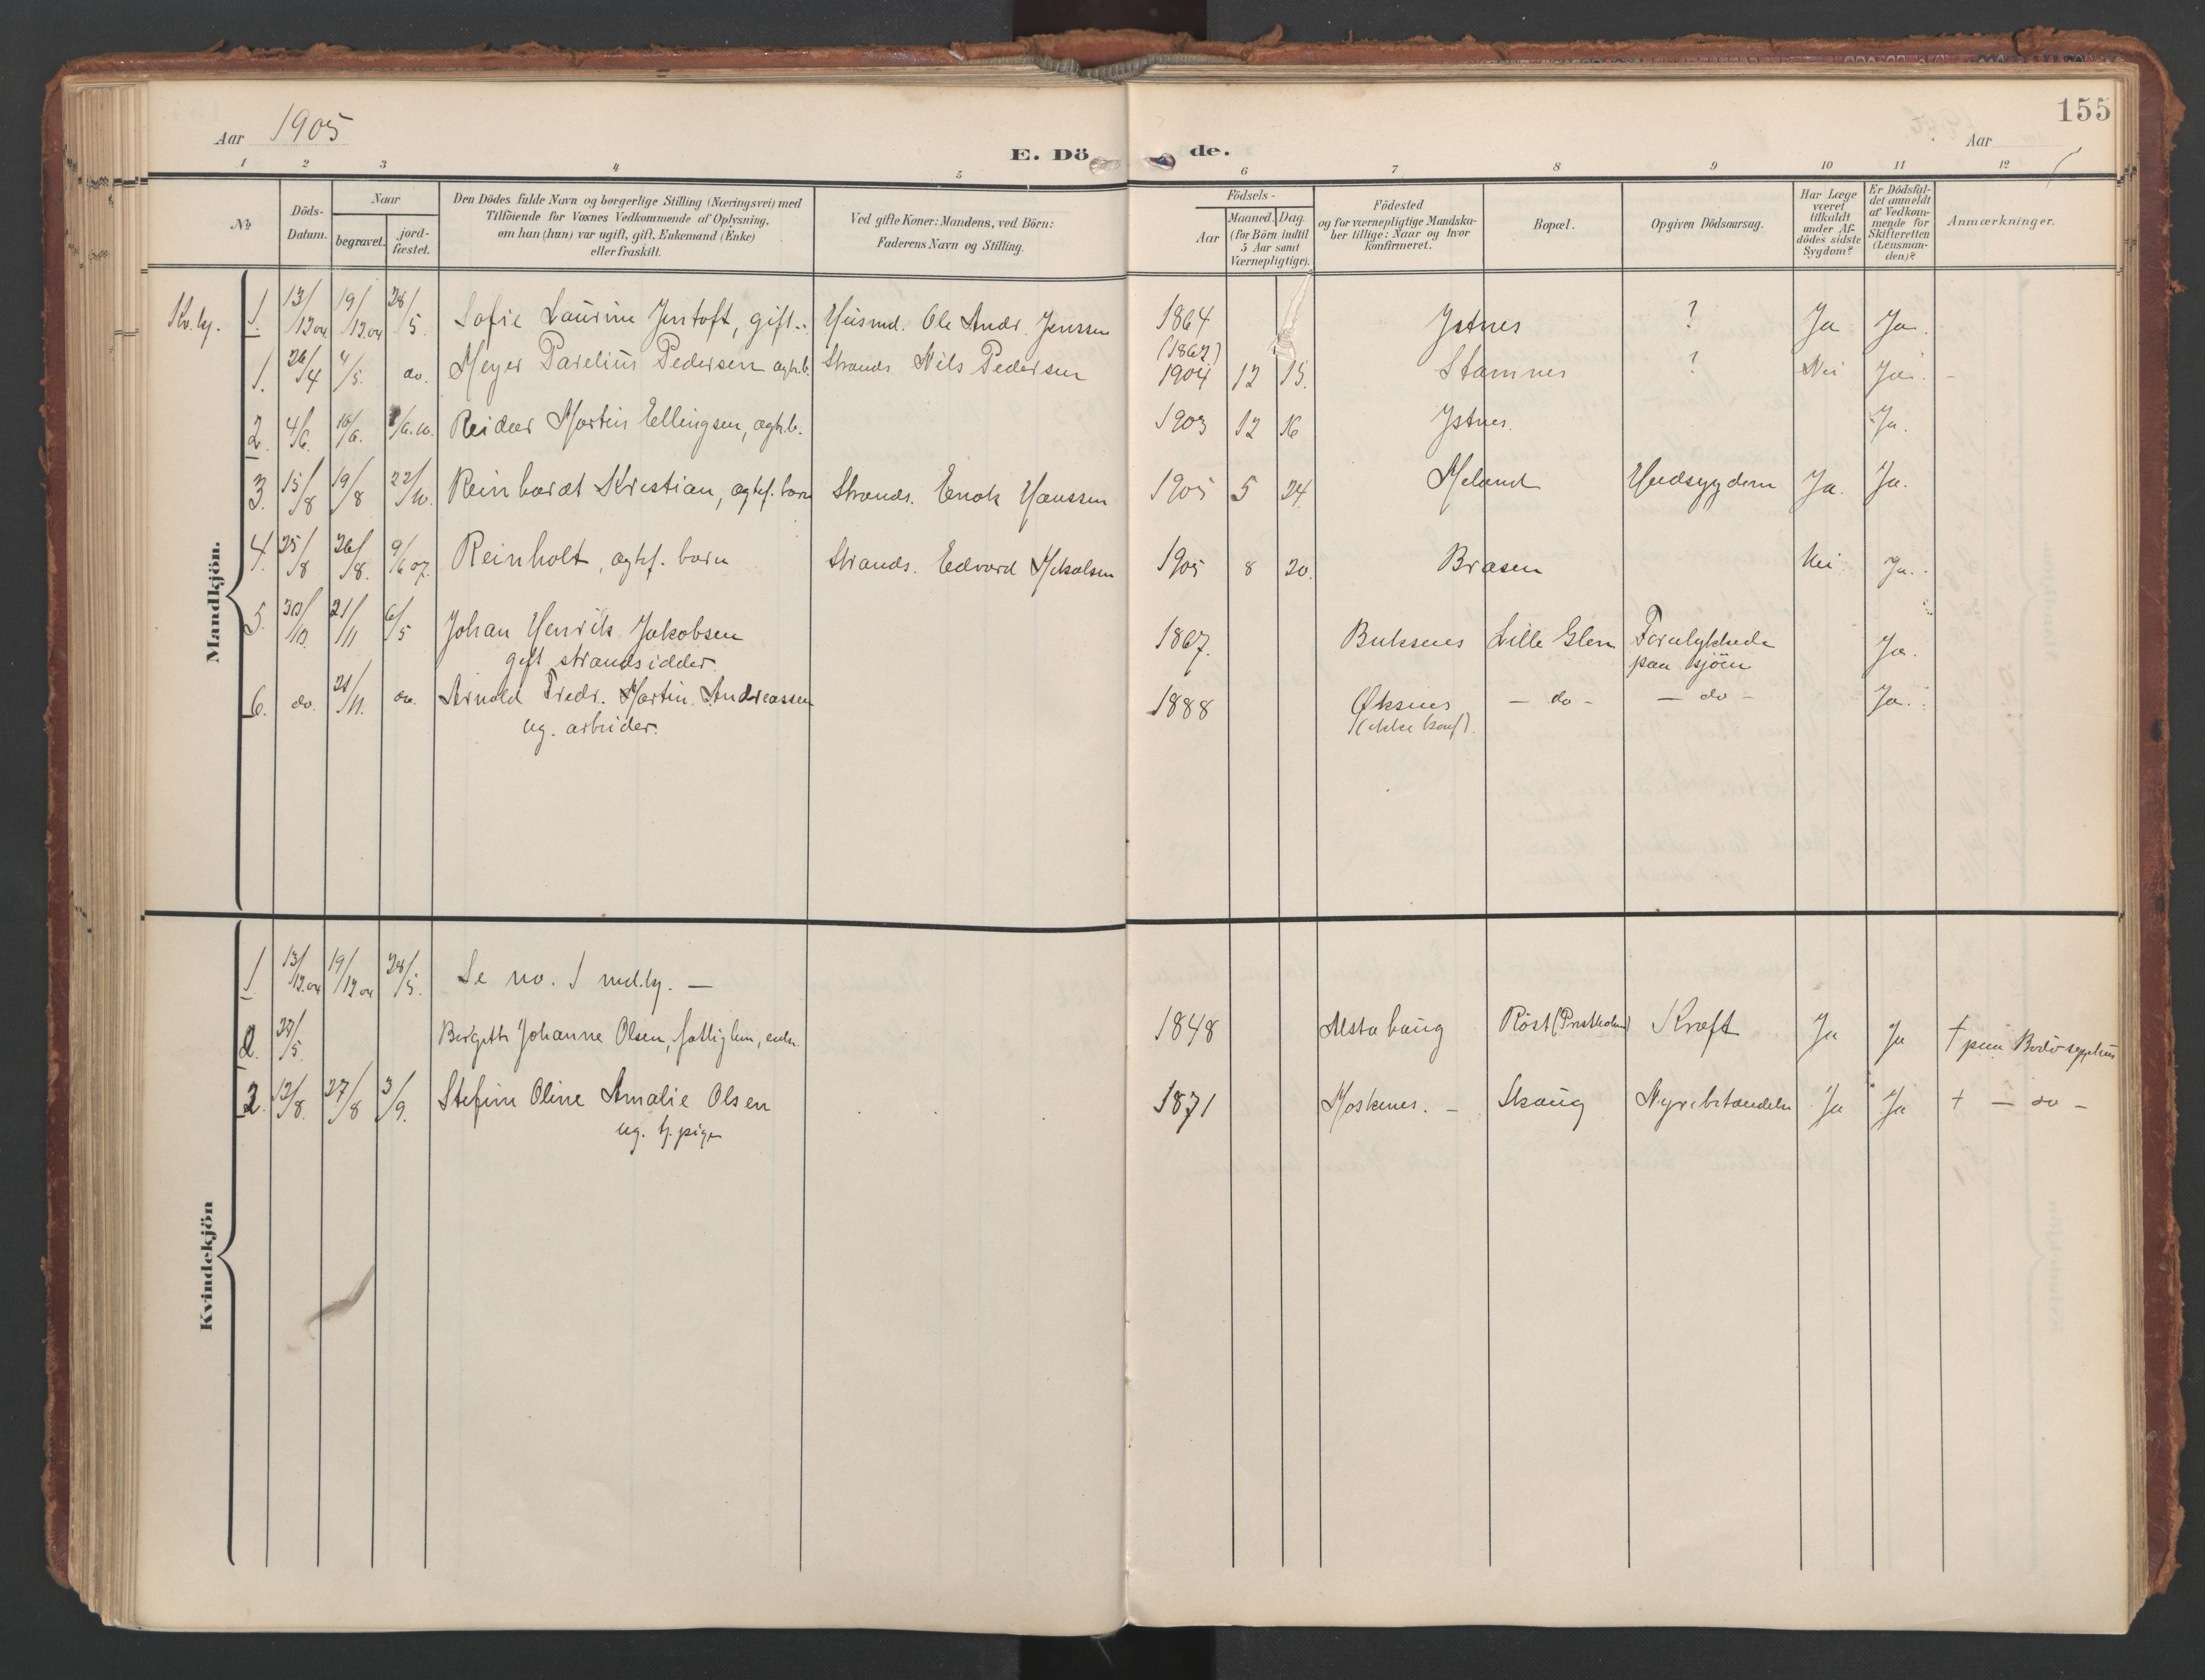 155
Aar 1905
Aar
E. Dö de.
1 2 3 4 5 6 7 8 9 10 11 12
No
Döds-Datum.
Naar
begravet.
jord-fæstet.
Den Dödes fulde Navn og borgerlige Stilling (Næringsvei) med
Tilföiende for Voxnes Vedkommende af Oplysning,
om han (hun) var ugift, gift, Enkemand (Enke)
eller fraskilt.
Ved gifte Koner: Mandens, ved Börn:
Faderens Navn og Stilling.
Födsels-
Aar
Maaned. Dag.
(for Börn indtil
5 Aar samt
Værnepligtige).
Födested
og for værnepligtige Mandska-
ber tillige: Naar og hvor
konfirmeret.
Bopæl.
Opgiven Dödsaarsag.
Har Læge
været
tilkaldt
under Af-
dödes sidste
Sygdom?
Er Dödsfal-
det anmeldt
af Vedkom-
mende for
Skifteretten
(Lensman-
den)?
Anmærkninger.
Mandkjön.
Kv.kj. 1. 13/12 04 19/12 04 28/5. Sofie Laurine Jentoft, gift.. Husmd. Ole Andr. Jenssen 1864 Ystnes ? Ja Ja.
(1867)
1. 26/4 4/5. do. Meyer Parelius Pedersen ægt.b. Strands. Nils Pedersen 1904 12 15. Stamnes ? Nei Ja.
2. 4/6. 10/6. Reidar Martin Ellingsen, ægt.b. 1903 12 16 Ystnes. Ja.
3. 15/8 19/8 22/10. Reinhardt Kristian, ægtef. barn Strands. Enok Hanssen 1905 5 24. Meland Hudsygdom Ja. Ja.
4. 25/8 26/8. 9/6 07. Reinholt, ægtef. barn Strands. Edvard Mikalsen 1905 8 20. Brasen Nei Ja.
5. 30/10. 21/11 6/5 Johan Henrik Jakobsen 1867. Buksnes Lille Glea Forulykkede Ja.
gift strandsidder. paa sjöen
6. do. 21/11. do. Arnold Fredr. Martin. Andreassen 1888 Øksnes – do – – do – Ja.
ug. arbeider. (ikke konf).
Kvindekjön
1 13/12 04 19/12 04 28/5. Se no. 1 md.kj. —
2. 27/5. Birgitte Johanne Olsen, fattiglem, enke. 1848 Alstahaug Röst (Prestholm) Kræft Ja Ja † paa Bodö sygehus
3. 12/8. 27/8 3/9. Stefine Oline Amalie Olsen 1871 Moskenes. – Skaug Nyrebetændelse Ja Ja † – do –
ug. tj.pige